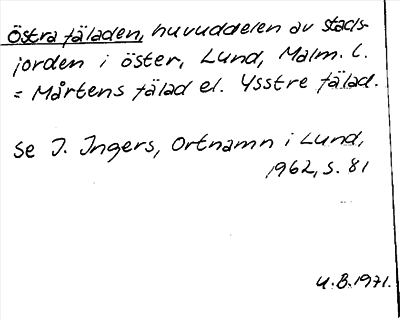 Östra fäladen, huvuddelen av stads-
jorden i öster, Lund, Malm. l.
= Mårtens fälad el. Ysstre fälad.
se I. Ingers, Ortnamn i Lund,
1962, s. 81
U.B. 1971.